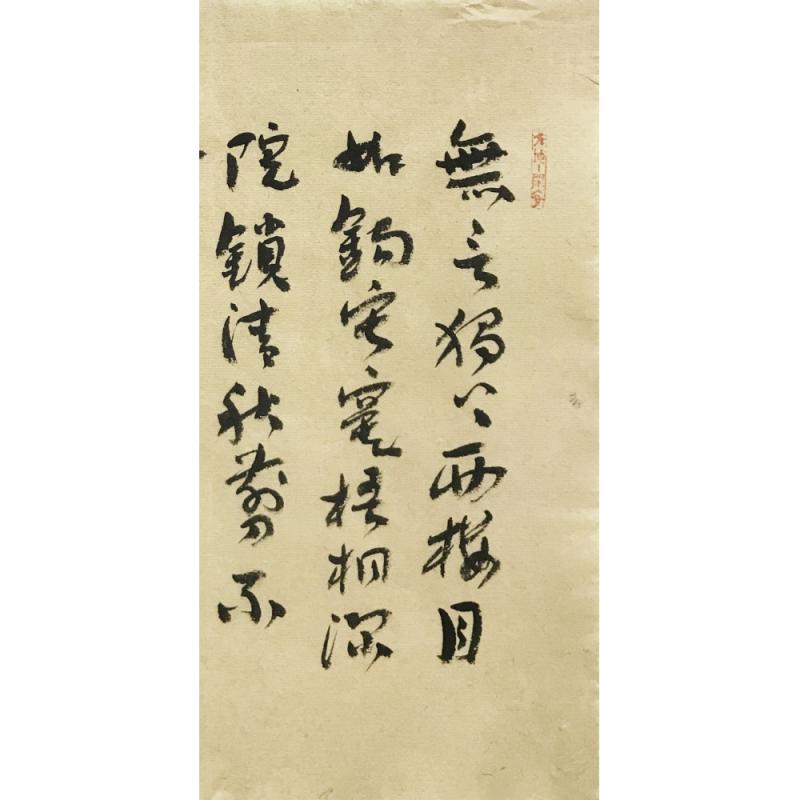 無言獨上西樓月
如鉤寂寞梧桐深
院鎖清秋剪不